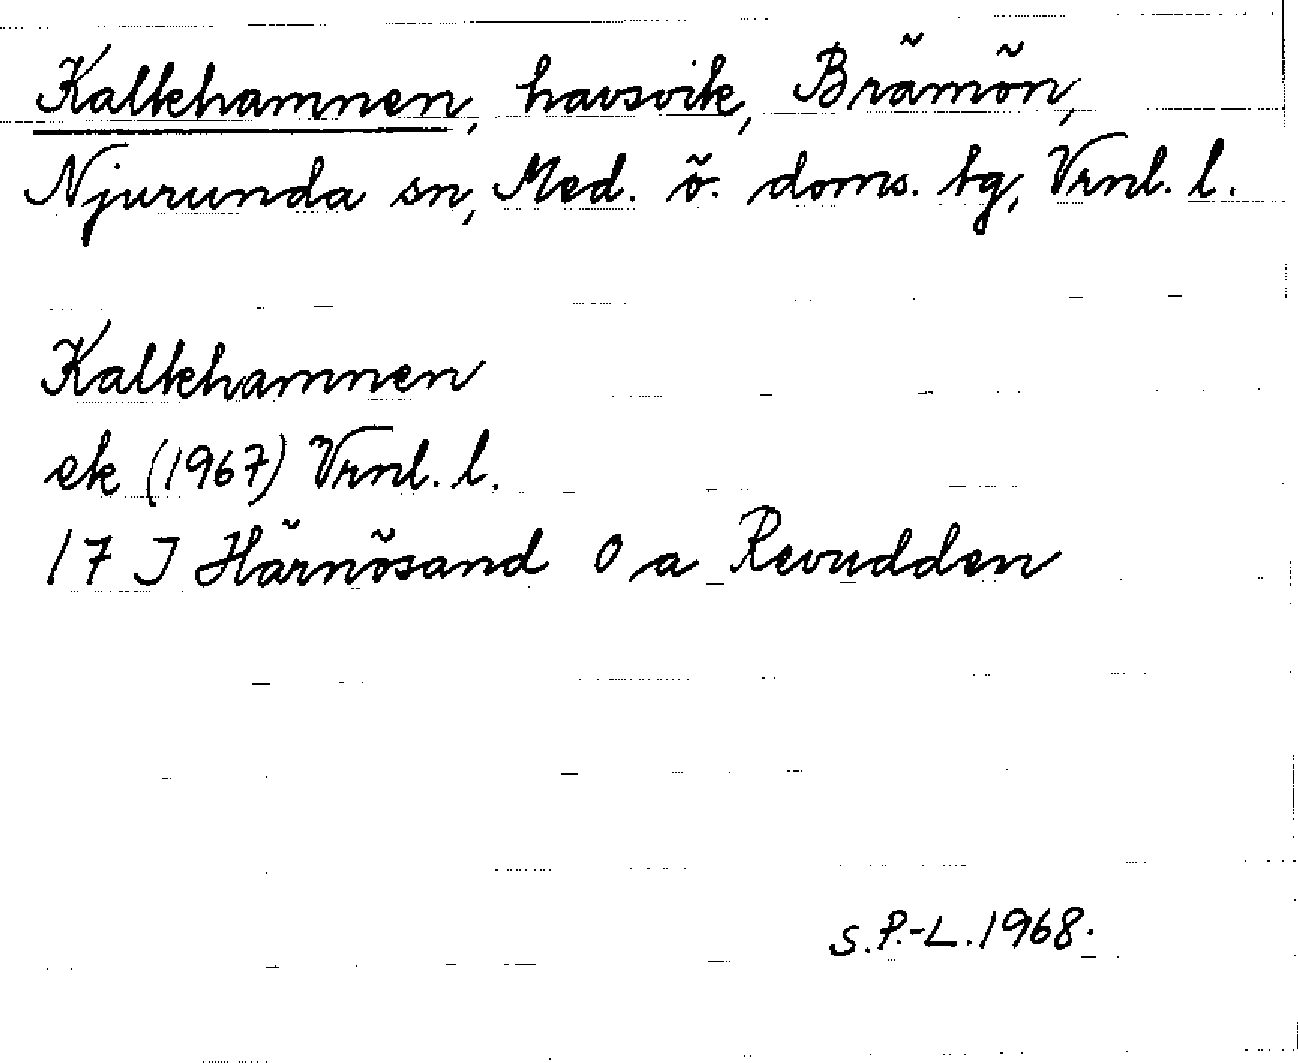 Kalkhamnen, havsvik, Brämön,
Njurunda sn, Med. ö. doms. tg, Vrnl. l.
Kalkhamnen
ek (1967) Vrnl. l.
17 J Härnösand 0 a Revudden
S.P.-L. 1968.